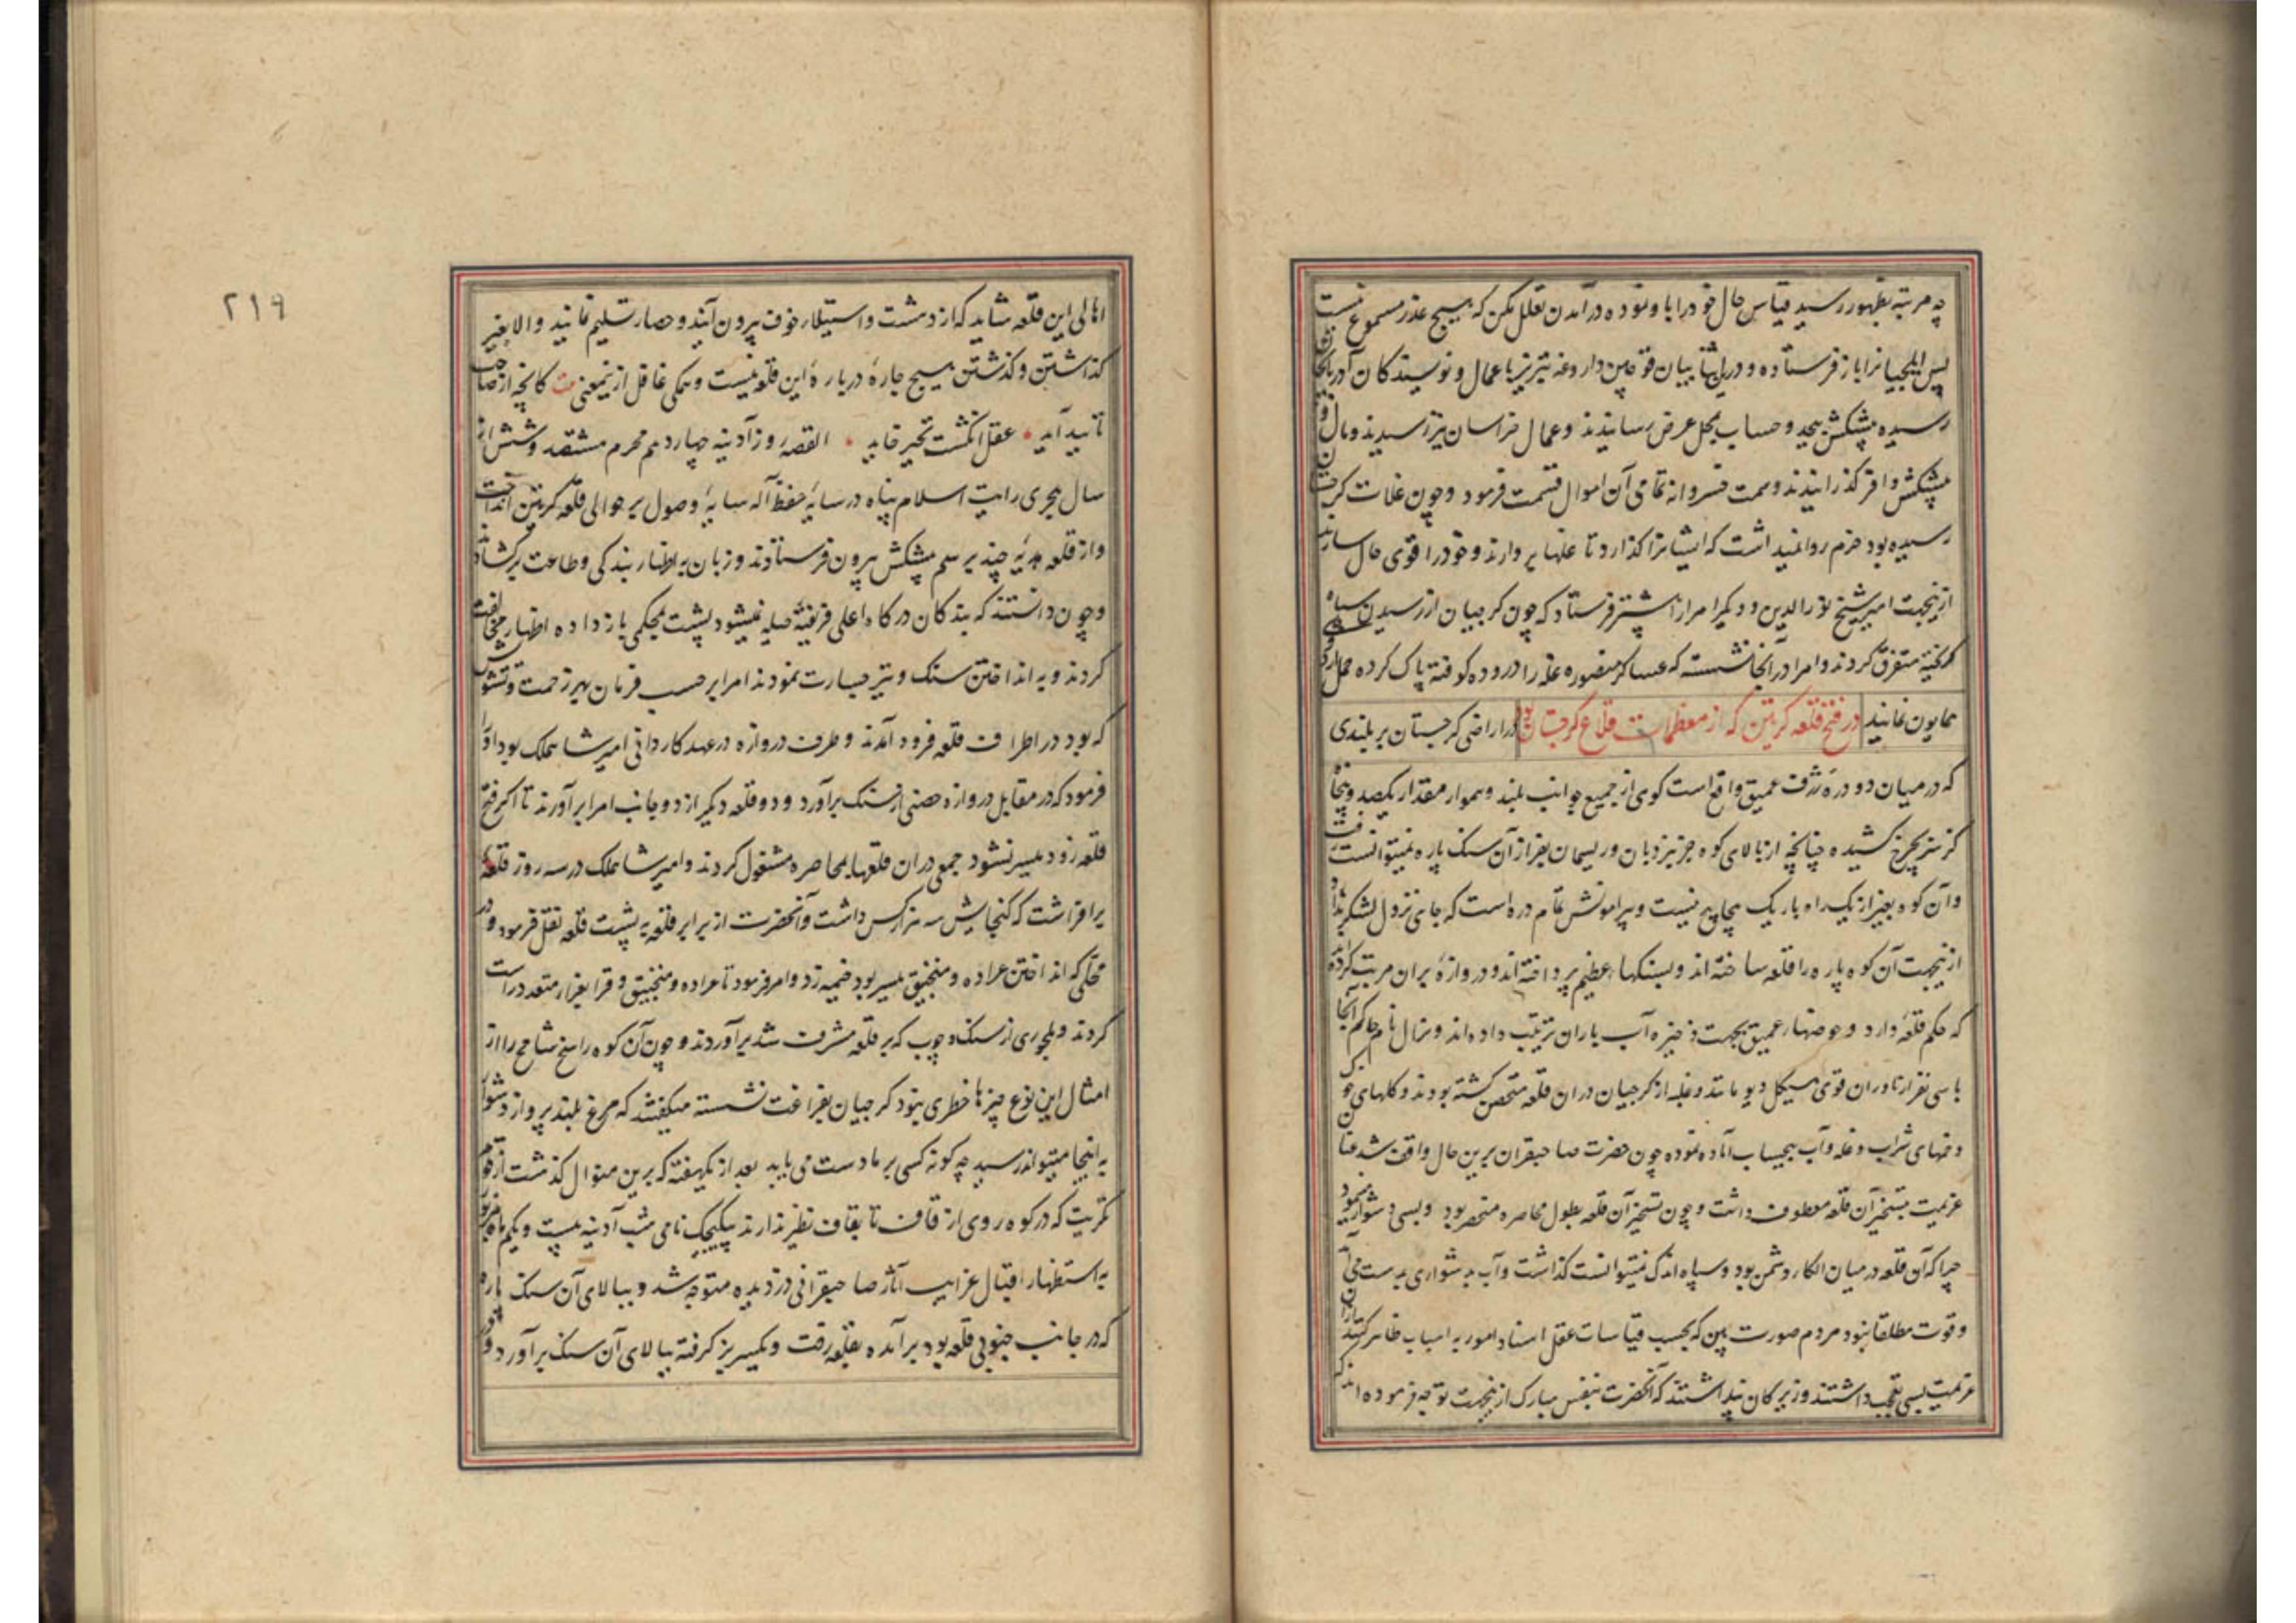 چه مرتبه بظهور رسید قیاس حال خود را با و نوده در آمدن تعلل مکن که هیچ عذر مسموع نیست
پس ایلچیانرا باز فرستاده و درین اثنا بیان قوچین داروغه تبریز با عمال و نویسندکان آذربایجان
رسیده پیشکش بیحد و حساب بمحل عرض رسانیدند و عمال خراسان نیز رسیدند و مال و
پیشکش وافر کذرانیدند و همت خسروانه تمامی آن اموال قسمت فرمود و چون غلات کرجستان
رسیده بود حزم روا نمیداشت که ایشانرا کذارد تا غلها بردارند و خود را قوی حال سازند
ازینجهت امیر شیخ نورالدین و دیکر امرا را پیشتر فرستاد که چون کرجیان از رسیدن سپاه
کریخته متفرق کردند و امرا در آنجا نشسته که عساکر منصوره غله را دروده کوفته پاک کرده حمل اردوی
همایون نمایند در فتح قلعه کرتین که از معظمات قلاع کرجستان بود در اراضی کرجستان بر بلندی
که در میان دو دره ژرف عمیق واقع است کوی از جمیع جوانب بلند و هموار مقدار یکصد و پنجاه
کز سر بچرخ کشیده چنانچه از بالای کوه جز نردبان و ریسمان بفراز آن سنک پاره نمیتوانست رفت
و آن کوه بغیر از یک راه باریک پیچاپیچ نیست و پیرامونش تمام دره است که جای نزول لشکر ندارد
ازینجهت آن کوه پاره را قلعه ساخته اند و بسنکهاء عظیم پرداخته اند و دروازه بران مرتب کرده اند
که حکم قلعه دارد و حوضهاء عمیق بجهت ذخیره آب باران ترتیب داده اند و نزال نام حاکم آنجا
با سی نفر از ناوران قوی هیکل دیو مانند و غلبه از کرجیان دران قلعه متحصن کشته بودند و کلهای خوک
و خمهای شراب و غله و آب بیحساب آماده نموده چون حضرت صاحبقران برین حال واقف شد عنان
عزیمت بتسخیر آن قلعه معطوف داشت و چون تسخیر آن قلعه بطول محاصره منحصر بود و بسی دشوار مینمود
چرا که آن قلعه در میان الکاء دشمن بود و سپاه اندک نمیتوانست کذاشت و آب بدشواری بدست می آمد
و قوت مطلقا نبود مردم صورت بین که بحسب قیاسات عقل اسناد امور به اسباب ظاهر کنند ازان
عزیمت بسی تعجب داشتند و زیرکان پنداشتند که آنحضرت بنفس مبارک ازینجهت توجه فرموده اند که
۲۱۹
اهالی این قلعه شاید که از دهشت و استیلاء خوف بیرون آیند و حصار تسلیم نمایند والا بغیر
کذاشتن و کذشتن هیچ چارهٔ دربارهٔ این قلعه نیست و همکی غافل ازینمعنی کانچه از صاحب
تایید آید عقل انکشت تحیر خاید القصه روز آدینه چهاردهم محرم هشتصد و شش از
سال هجری رایت اسلام پناه در سایهٔ حفظ آله سایهٔ وصول بر حوالی قلعه کرتین انداخت
و از قلعه هدیهٔ چند برسم پیشکش بیرون فرستادند و زبان به اظهار بندکی و طاعت برکشادند
و چون دانستند که بندکان درکاه اعلی فریفتهٔ حیله نمیشود پشت بمحکمی باز داده اظهار مخالفت
کردند و به انداختن سنک و تیر جسارت نمودند امرا بر حسب فرمان بهر زحمت و تشویش
که بود در اطراف قلعه فرود آمدند و طرف دروازه در عهد کاردانی امیر شاهملک بود او را
فرمود که در مقابل دروازه حصنی از سنک برآورد و دو قلعه دیکر از دو جانب امرا برآورند تا اکر فتح
قلعه زود میسر نشود جمعی دران قلعها بمحاصره مشغول کردند و امیر شاهملک در سه روز قلعهٔ
برافراشت که کنجایش سه هزار کس داشت و آنحضرت از برابر قلعه به پشت قلعه نقل فرمود و در
محلی که انداختن عراده و منجنیق میسر بود خیمه زد و امر فرمود تا عراده و منجنیق و قرابغرا متعدد راست
کردند و ملجوری از سنک و چوب که بر قلعه مشرف شد برآوردند و چون آن کوه راسخ شامخ را از
امثال این نوع چیزها خطری نبود کرجیان بفراغت نشسته میکفتند که مرغ بلند پرواز دشوار
به اینجا میتواند رسید چه کونه کسی بر ما دست می یابد بعد از یکهفته که برین منوال کذشت از قوم
مکریت که در کوه روی از قاف تا بقاف نظیر ندارند بیکیجک نامی شب آدینه بیست و یکم ماه مزبور
به استظهار اقبال غرایب آثار صاحبقرانی دزدیده متوجه شد و ببالای آن سنک پاره
که در جانب جنوبی قلعه بود برآمده بقلعه رفت و یکسر بز کرفته ببالای آن سنک برآورد و در